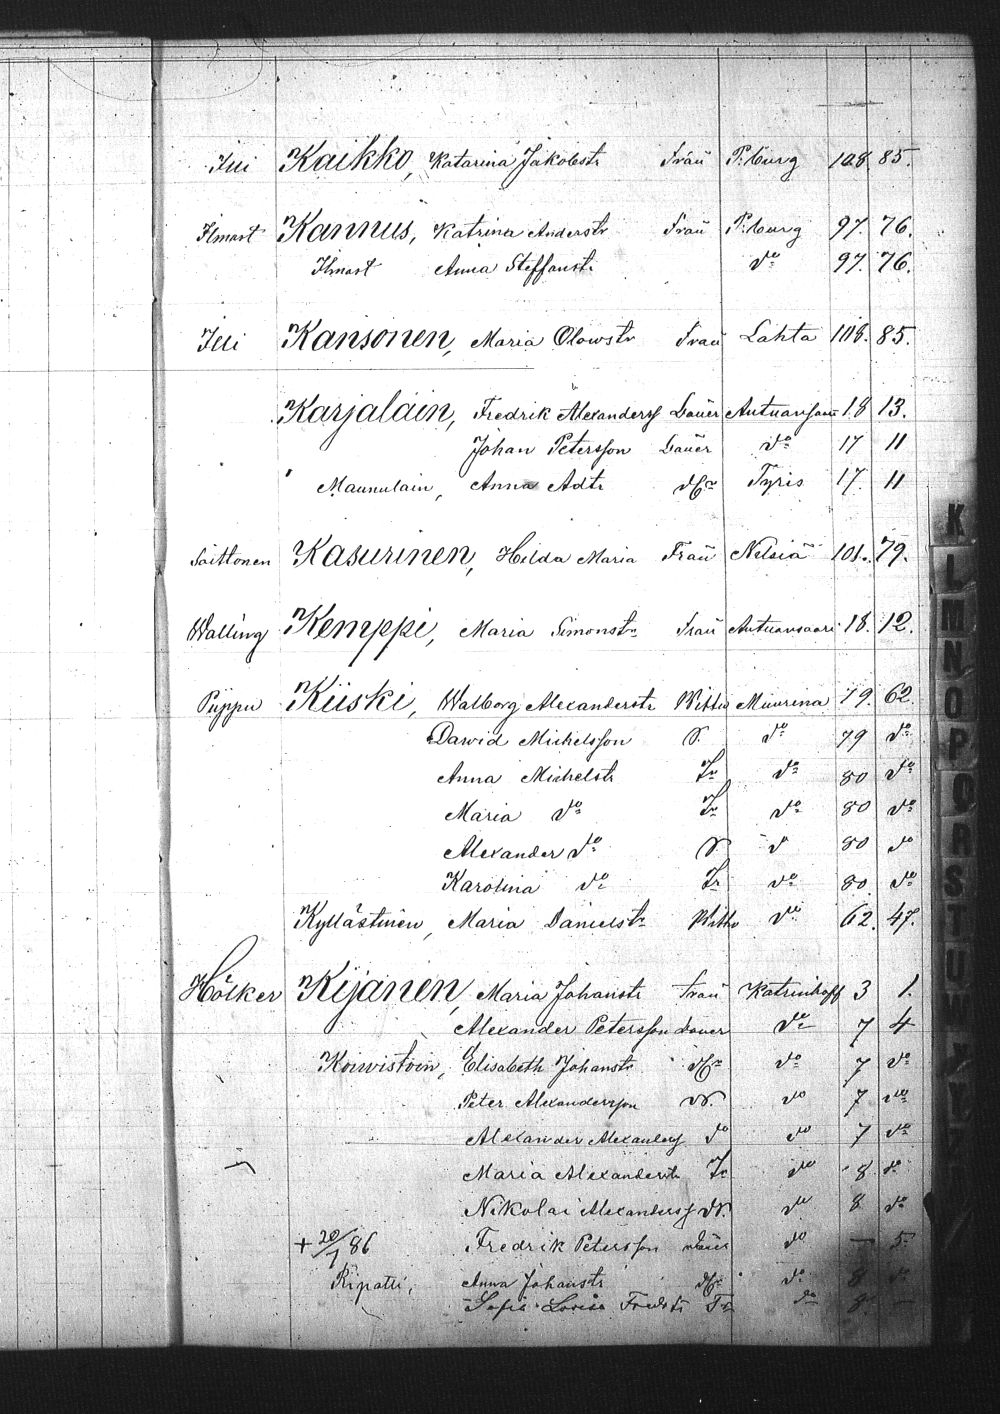 Kaikko, Katarina Jakobstr Frau P:burg 108. 85.
Ilmast Kannus, Katrina Anderstr Frau P:burg 97. 76.
Ilmast Anna Steffanstr do 97. 76.
Kansonen, Maria Olowstr Frau Lahta 108. 85.
Karjalain, Fredrik Alexanderss Bauer 18 13.
Johan Petersson Bauer do 17 11
Maunulain, Anna Adtr Tyris 17. 11
Saittonen Kasurinen, Hilda Maria Frau Nilsiä 101. 79.
Walling Kemppi, Maria Simonstr Frau Antuansaari 18. 12.
Piippu Kiiski, Walborg Alexanderstr Wittw Muurina 79. 62.
Dawid Michelsson S. do 79 do
Anna Michelstr Tr do 80 do
Maria do Tr do 80 do
Alexander do S. do 80 do
Karolina do Tr do 80. do
Kyllästinen, Maria Danielstr Wittw do 62. 47.
Hölker Kijanen, Maria Johanstr Frau Katrinhoff 3 1.
Alexander Petersson Bauer do 7 4
Koiwistoin, Elisabeth Johanstr do 7 do
Peter Alexandersson do 7 do
Alexander Alexanderss do do 7 do
Maria Alexanderstr Tr do 8 do
Nikolai Alexanderss do 8 do
+ 20/7 86 Fredrik Petersson Bauer do — 5
Ripatti, Anna Johanstr do 8 do
Sofia Lovisa Fredrstr Tr do 8.
K
L
M
N
O
P
Q
R
S
T
U